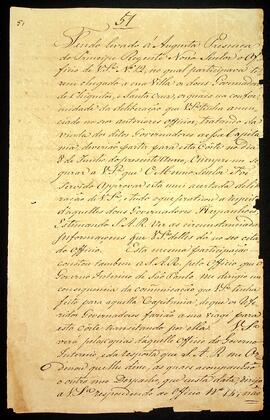 51
51
Tendo levado á Augusta Presença
do Principe Regente Nosso Senhor o Of-
ficio de V.S.ª N.º 12, no qual participava te-
rem chegado a essa Villa os dous Governadores
de Chiquitos, e Santa Cruz, os quaes na confor-
midade da deliberação que V.S.ª tinha anun-
ciado no seu anterior officio, tratando da
vinda dos ditos Governadores a essa Capita-
nia, deverião partir para esta Côrte no dia
8 de Junho do presente anno, Cumpre-me se-
gurar a V.S.ª que O Mesmo Senhor Foi
Servido Approvar esta mui acertada delibe-
ração de V.S.ª, e tudo o que praticou a respeito
daquelles dous Governadores Hespanhoes,
Estimando S.A.R. as circunstanciadas
Informaçoens que V.S.ª delles dá no seu cita-
do Officio. Esta mesma participação
constou tambem a S.A.R. pelo Officio que o
Governo Interino de São Paulo me dirigio em
consequencia da communicação que V.S.ª tinha
feito para aquella Capitania, de que os re-
feridos Governadores farião a sua viagem para
esta Côrte transitando por ella. V.S.ª
verá pelas copias daquelle Officio do Governo
Interino, e da resposta que S.A.R. me Or-
denou que lhe désse, as quaes acompanhão
o outro meu Despacho, que nesta data dirijo
a V.S.ª respondendo ao Officio N.º 14,